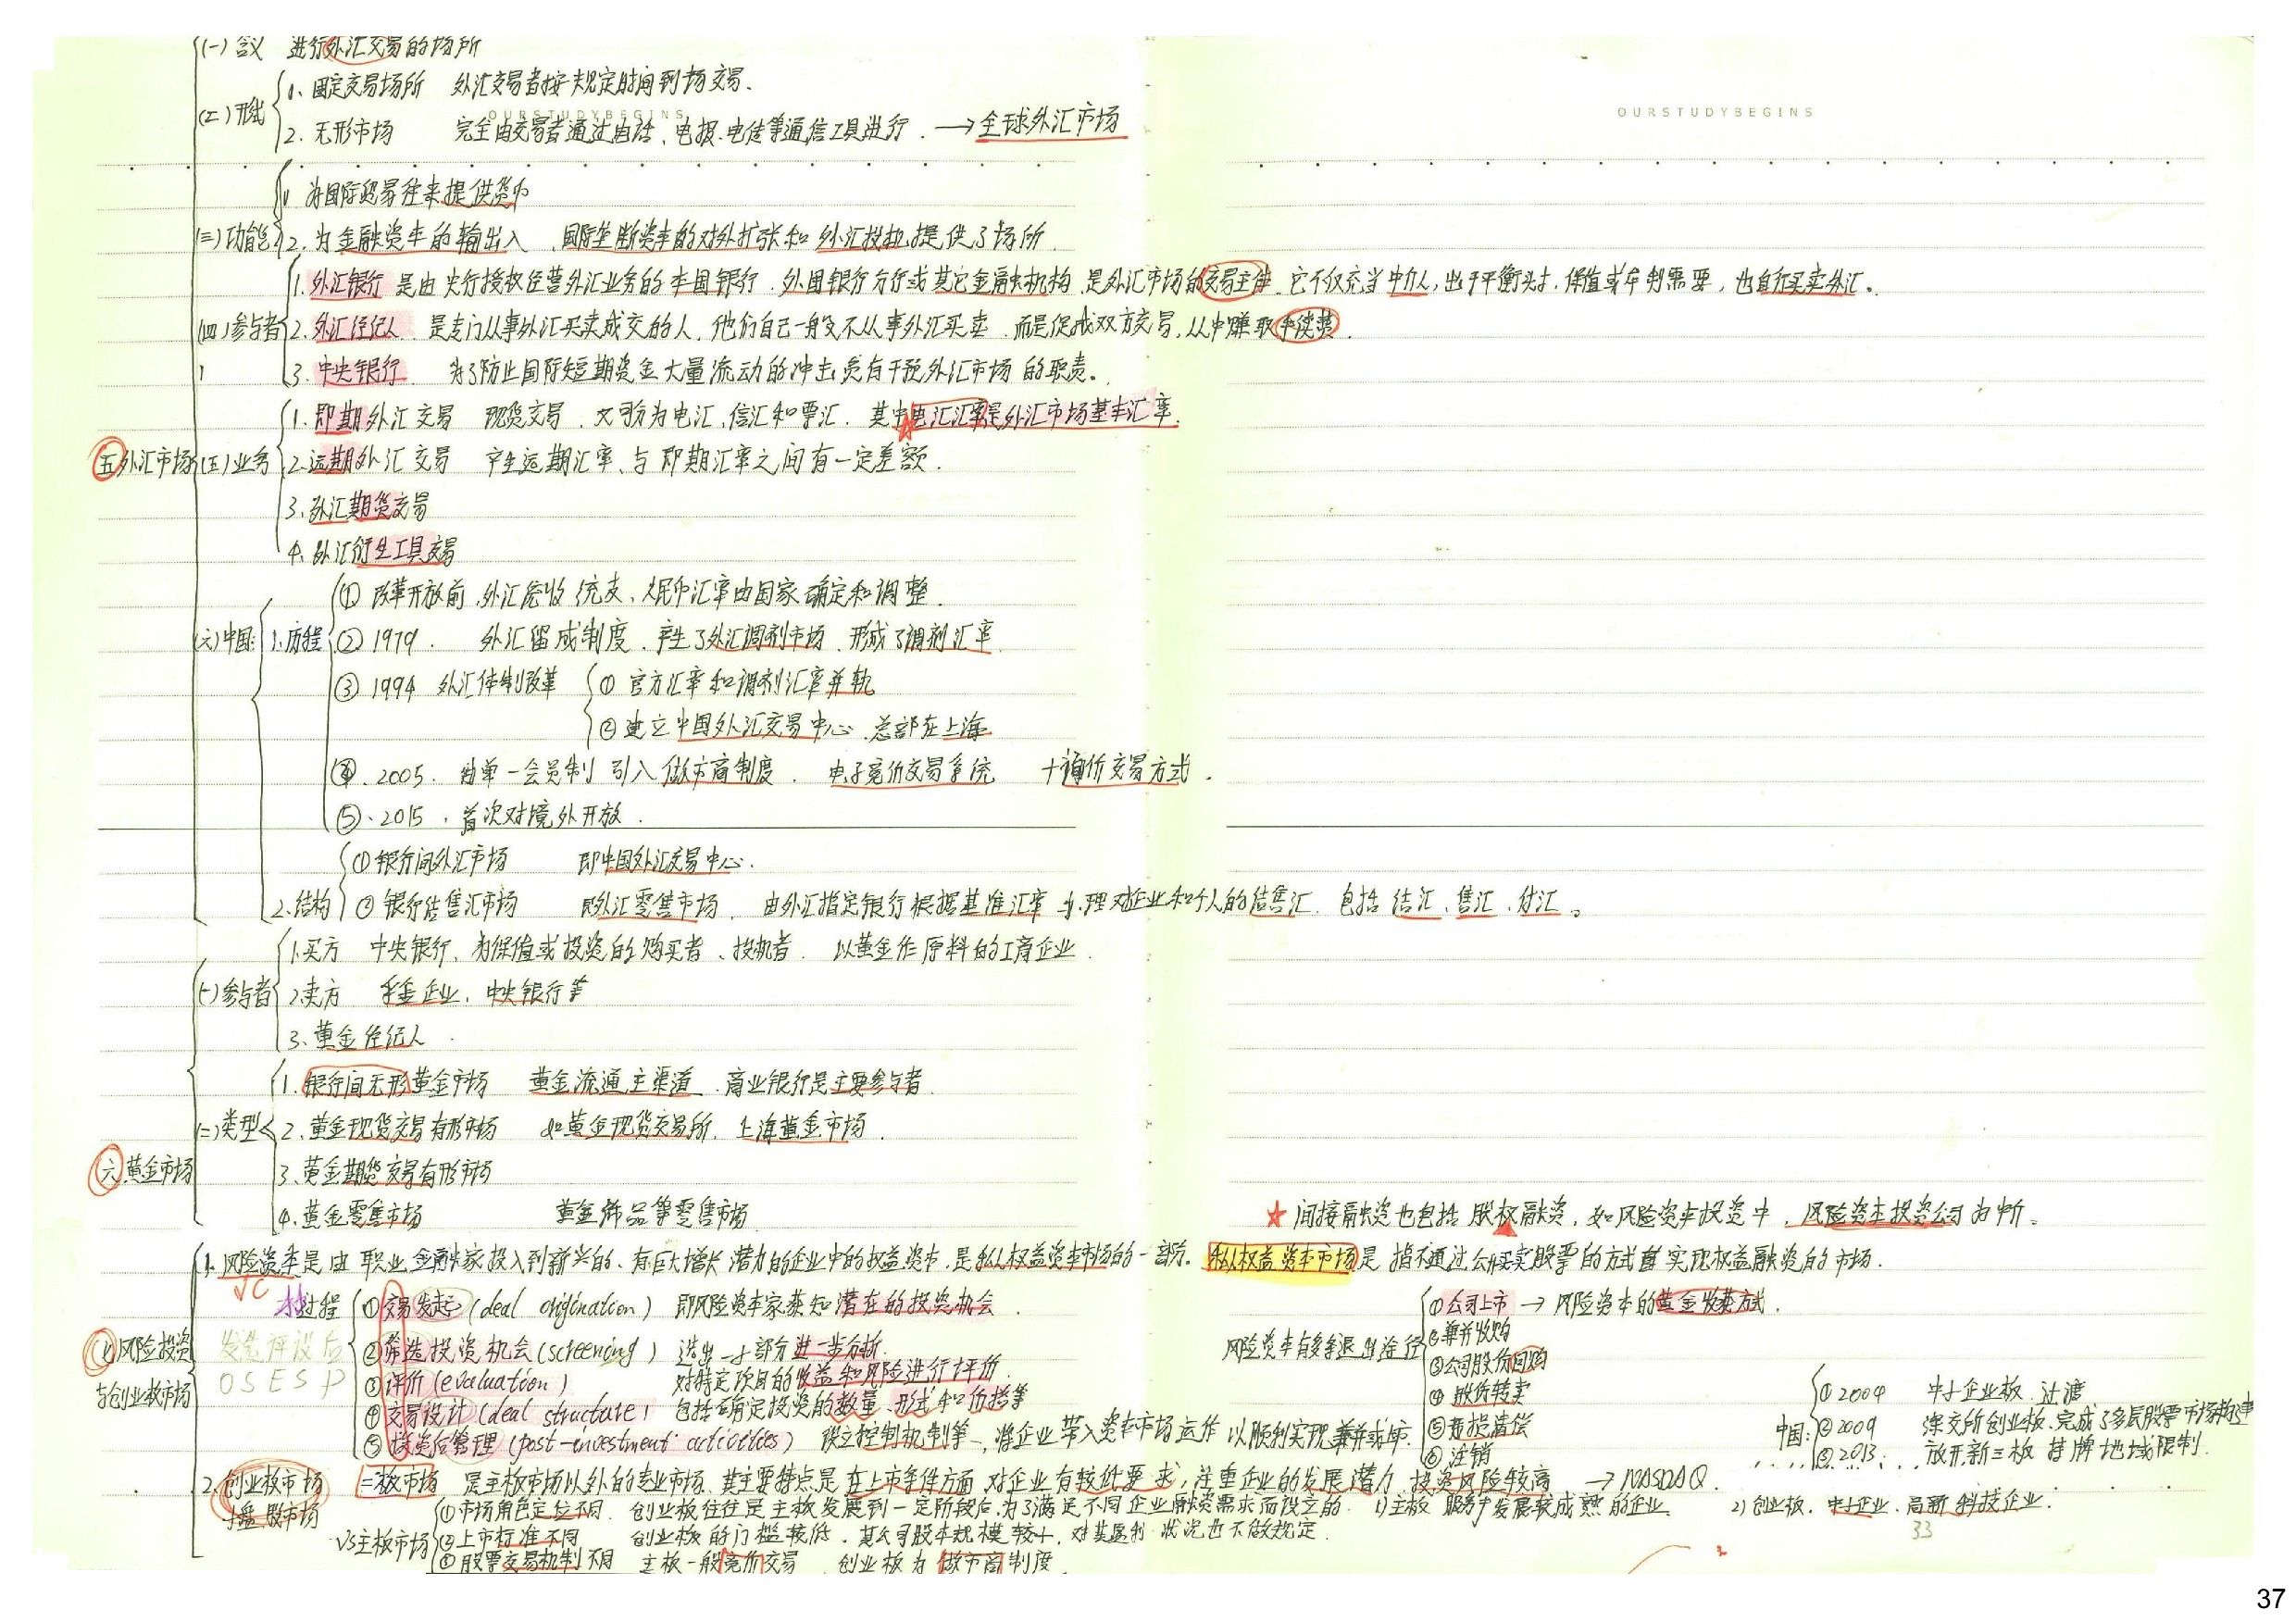 (一)含义 进行外汇交易的场所
(二)形式
1、固定交易场所 外汇交易者按规定时间到场交易.
2. 无形市场 完全由交易者通过电话、电报、电传等通信工具进行. → 全球外汇市场
OURSTUDYBEGINS
OURSTUDYBEGINS
(三)功能
1. 为国际贸易往来提供货币
2. 为金融资本的输出入、国际垄断资本的对外扩张和外汇投机提供了场所.
(四)参与者
1. 外汇银行 是由央行授权经营外汇业务的本国银行、外国银行分行或其它金融机构,是外汇市场的交易主体.它不仅充当中介人,出于平衡头寸,保值或牟利需要,也自行买卖外汇。
2. 外汇经纪人 是专门从事外汇买卖成交的人,他们自己一般不从事外汇买卖,而是促成双方交易,从中赚取手续费.
3. 中央银行 为了防止国际短期资金大量流动的冲击负有干预外汇市场的职责。
五 外汇市场
(五)业务
1. 即期外汇交易 现货交易. 又可分为电汇、信汇和票汇. 其中电汇汇率是外汇市场基本汇率.
2. 远期外汇交易 产生远期汇率、与即期汇率之间有一定差额.
3. 外汇期货交易
4. 外汇衍生工具交易
(六)中国:
1. 历程
① 改革开放前,外汇统收统支、人民币汇率由国家确定和调整.
② 1979. 外汇留成制度、产生了外汇调剂市场、形成了调剂汇率
③ 1994 外汇体制改革 ① 官方汇率和调剂汇率并轨
② 建立中国外汇交易中心、总部在上海
④. 2005. 由单一会员制 引入做市商制度. 电子竞价交易系统 + 询价交易方式.
⑤. 2015. 首次对境外开放.
2. 结构
① 银行间外汇市场 即中国外汇交易中心.
② 银行结售汇市场 即外汇零售市场. 由外汇指定银行根据基准汇率办理对企业和个人的结售汇. 包括结汇、售汇、付汇。
六 黄金市场
(一)参与者
1. 买方 中央银行、为保值或投资的购买者、投机者. 以黄金作原料的工商企业.
2. 卖方 采金企业、中央银行等
3. 黄金经纪人.
(二)类型
1. 银行间无形黄金市场 黄金流通主渠道、商业银行是主要参与者.
2. 黄金现货交易有形市场 如黄金现货交易所、上海黄金市场.
3. 黄金期货交易有形市场
4. 黄金零售市场 黄金饰品等零售市场
★ 间接融资也包括股权融资,如风险资本投资中,风险资本投资公司为中介。
七 风险投资与创业板市场
1. 风险资本是由职业金融家投入到新兴的、有巨大增长潜力的企业中的权益资本,是私人权益资本市场的一部分. 私人权益资本市场是指不通过公开买卖股票的方式 实现权益融资的市场.
VC
过程
发选评设后
OSESP
① 交易发起 (deal origination) 即风险资本家获知潜在的投资机会.
② 筛选投资机会 (screening) 选出一小部分进一步分析.
③ 评价 (evaluation) 对特定项目的收益和风险进行评价
④ 交易设计 (deal structure) 包括确定投资的数量、形式和价格等
⑤ 投资后管理 (post-investment activities) 设立控制机制等,将企业带入资本市场运作以顺利实现兼并或上市.
风险资本有多条退出途径
① 公司上市 → 风险资本的黄金收获方式.
② 兼并收购
③ 公司股份回购
④ 股份转卖
⑤ 亏损清偿
⑥ 注销
中国:
① 2004 中小企业板、过渡
② 2009 深交所创业板、完成了多层股票市场构建
③ 2013. 放开新三板挂牌地域限制.
2. 创业板市场 二板市场 是主板市场以外的专业市场、其主要特点是在上市条件方面对企业有较低要求,注重企业的发展潜力,投资风险较高 → NASDAQ.
小盘股市场
VS主板市场
① 市场角色定位不同. 创业板往往是主板发展到一定阶段后,为了满足不同企业融资需求而设立的. 1)主板 服务于发展较成熟的企业. 2)创业板. 中小企业、高新科技企业.
② 上市标准不同 创业板的门槛较低. 其公司股本规模较小, 对其盈利状况也不做规定.
③ 股票交易机制不同 主板一般竞价交易. 创业板为做市商制度.
33
37